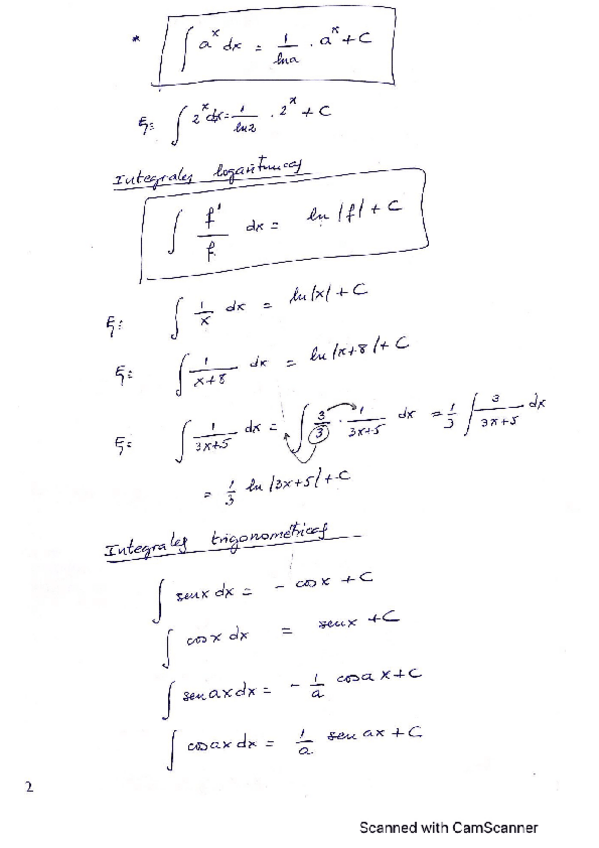 * ∫ aˣ dx = 1/lna · aˣ + C
Ej: ∫ 2ˣ dx = 1/ln2 · 2ˣ + C
Integrales logarítmicas
∫ f'/f dx = ln |f| + C
Ej: ∫ 1/x dx = ln|x| + C
Ej: ∫ 1/(x+8) dx = ln |x+8| + C
Ej: ∫ 1/(3x+5) dx = ∫ 3/3 · 1/(3x+5) dx = 1/3 ∫ 3/(3x+5) dx
= 1/3 ln |3x+5| + C
Integrales trigonométricas
∫ senx dx = - cosx + C
∫ cosx dx = senx + C
∫ senax dx = - 1/a cosax + C
∫ cosax dx = 1/a senax + C
2
Scanned with CamScanner